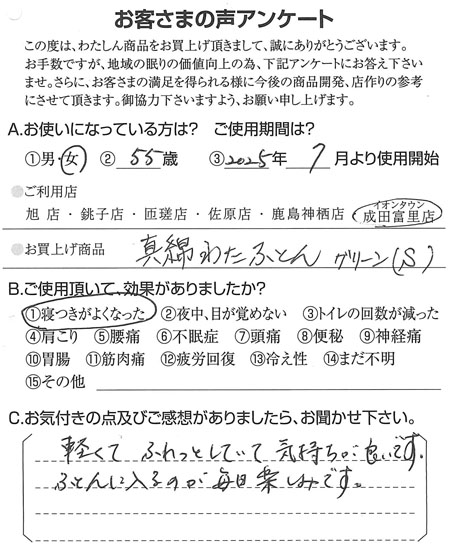 お客さまの声アンケート
この度は、わたしん商品をお買上げ頂きまして、誠にありがとうございます。
お手数ですが、地域の眠りの価値向上の為、下記アンケートにお答え下さい
ませ。さらに、お客さまの満足を得られる様に今後の商品開発、店作りの参考
にさせて頂きます。御協力下さいますよう、お願い申し上げます。
A.お使いになっている方は? ご使用期間は?
①男・女 ② 55 歳 ③ 2025 年 7 月より使用開始
●ご利用店
旭店・銚子店・匝瑳店・佐原店・鹿島神栖店・イオンタウン成田富里店
●お買上げ商品 真綿わたふとん グリーン(S)
B.ご使用頂いて、効果がありましたか?
①寝つきがよくなった ②夜中、目が覚めない ③トイレの回数が減った
④肩こり ⑤腰痛 ⑥不眠症 ⑦頭痛 ⑧便秘 ⑨神経痛
⑩胃腸 ⑪筋肉痛 ⑫疲労回復 ⑬冷え性 ⑭まだ不明
⑮その他
C.お気付きの点及びご感想がありましたら、お聞かせ下さい。
軽くて ふわっとしていて 気持ちが良いです。
ふとんに入るのが 毎日 楽しみです。